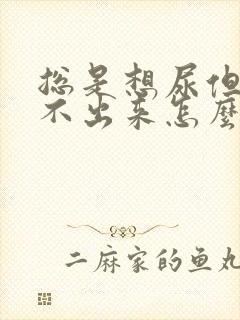 总是想尿但
不出来怎麼
二麻家的鱼丸